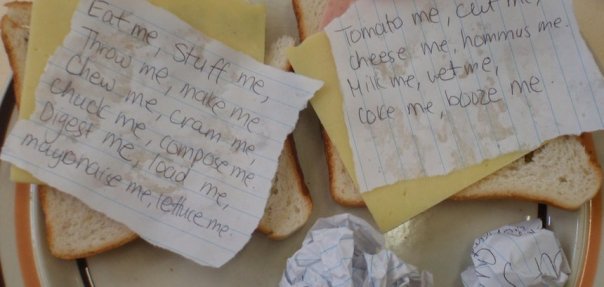 Eat me, Stuff me,
Throw me, make me.
Chew me, cram me,
chuck me, compose me.
Digest me, load me,
mayonaise me, lettuce me.
Tomato me, cut me,
cheese me, hommus me.
Milk me, vet me,
coke me, booze me.